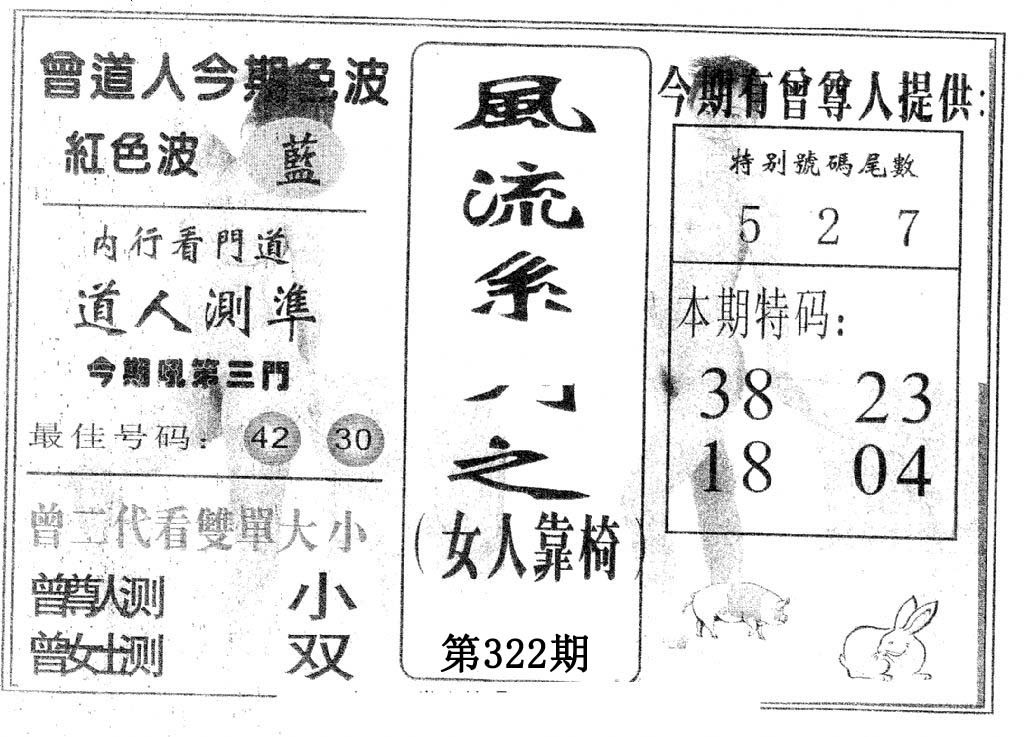 曾道人今期色波
紅色波 藍
内行看門道
道人測準
今期吼第三門
最佳号码: 42 30
曾二代看雙單大小
曾尊人测 小
曾女士测 双
風
流
系
之
(女人靠椅)
第322期
今期有曾尊人提供:
特别號碼尾數
5 2 7
本期特码:
38 23
18 04